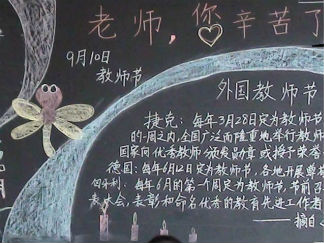 老师,你辛苦了
9月10日
教师节
外国教师节
捷克：每年3月28日定为教师节
的一周之内，全国广泛而隆重地举行教师
国家向优秀教师颁奖勋章或授予荣誉
德国：每年6月12日定为教师节，各地开展尊
匈牙利：每年6月的第一个周定为教师节，节前召
表大会，表彰和命名优秀的教育先进工作者
——摘自